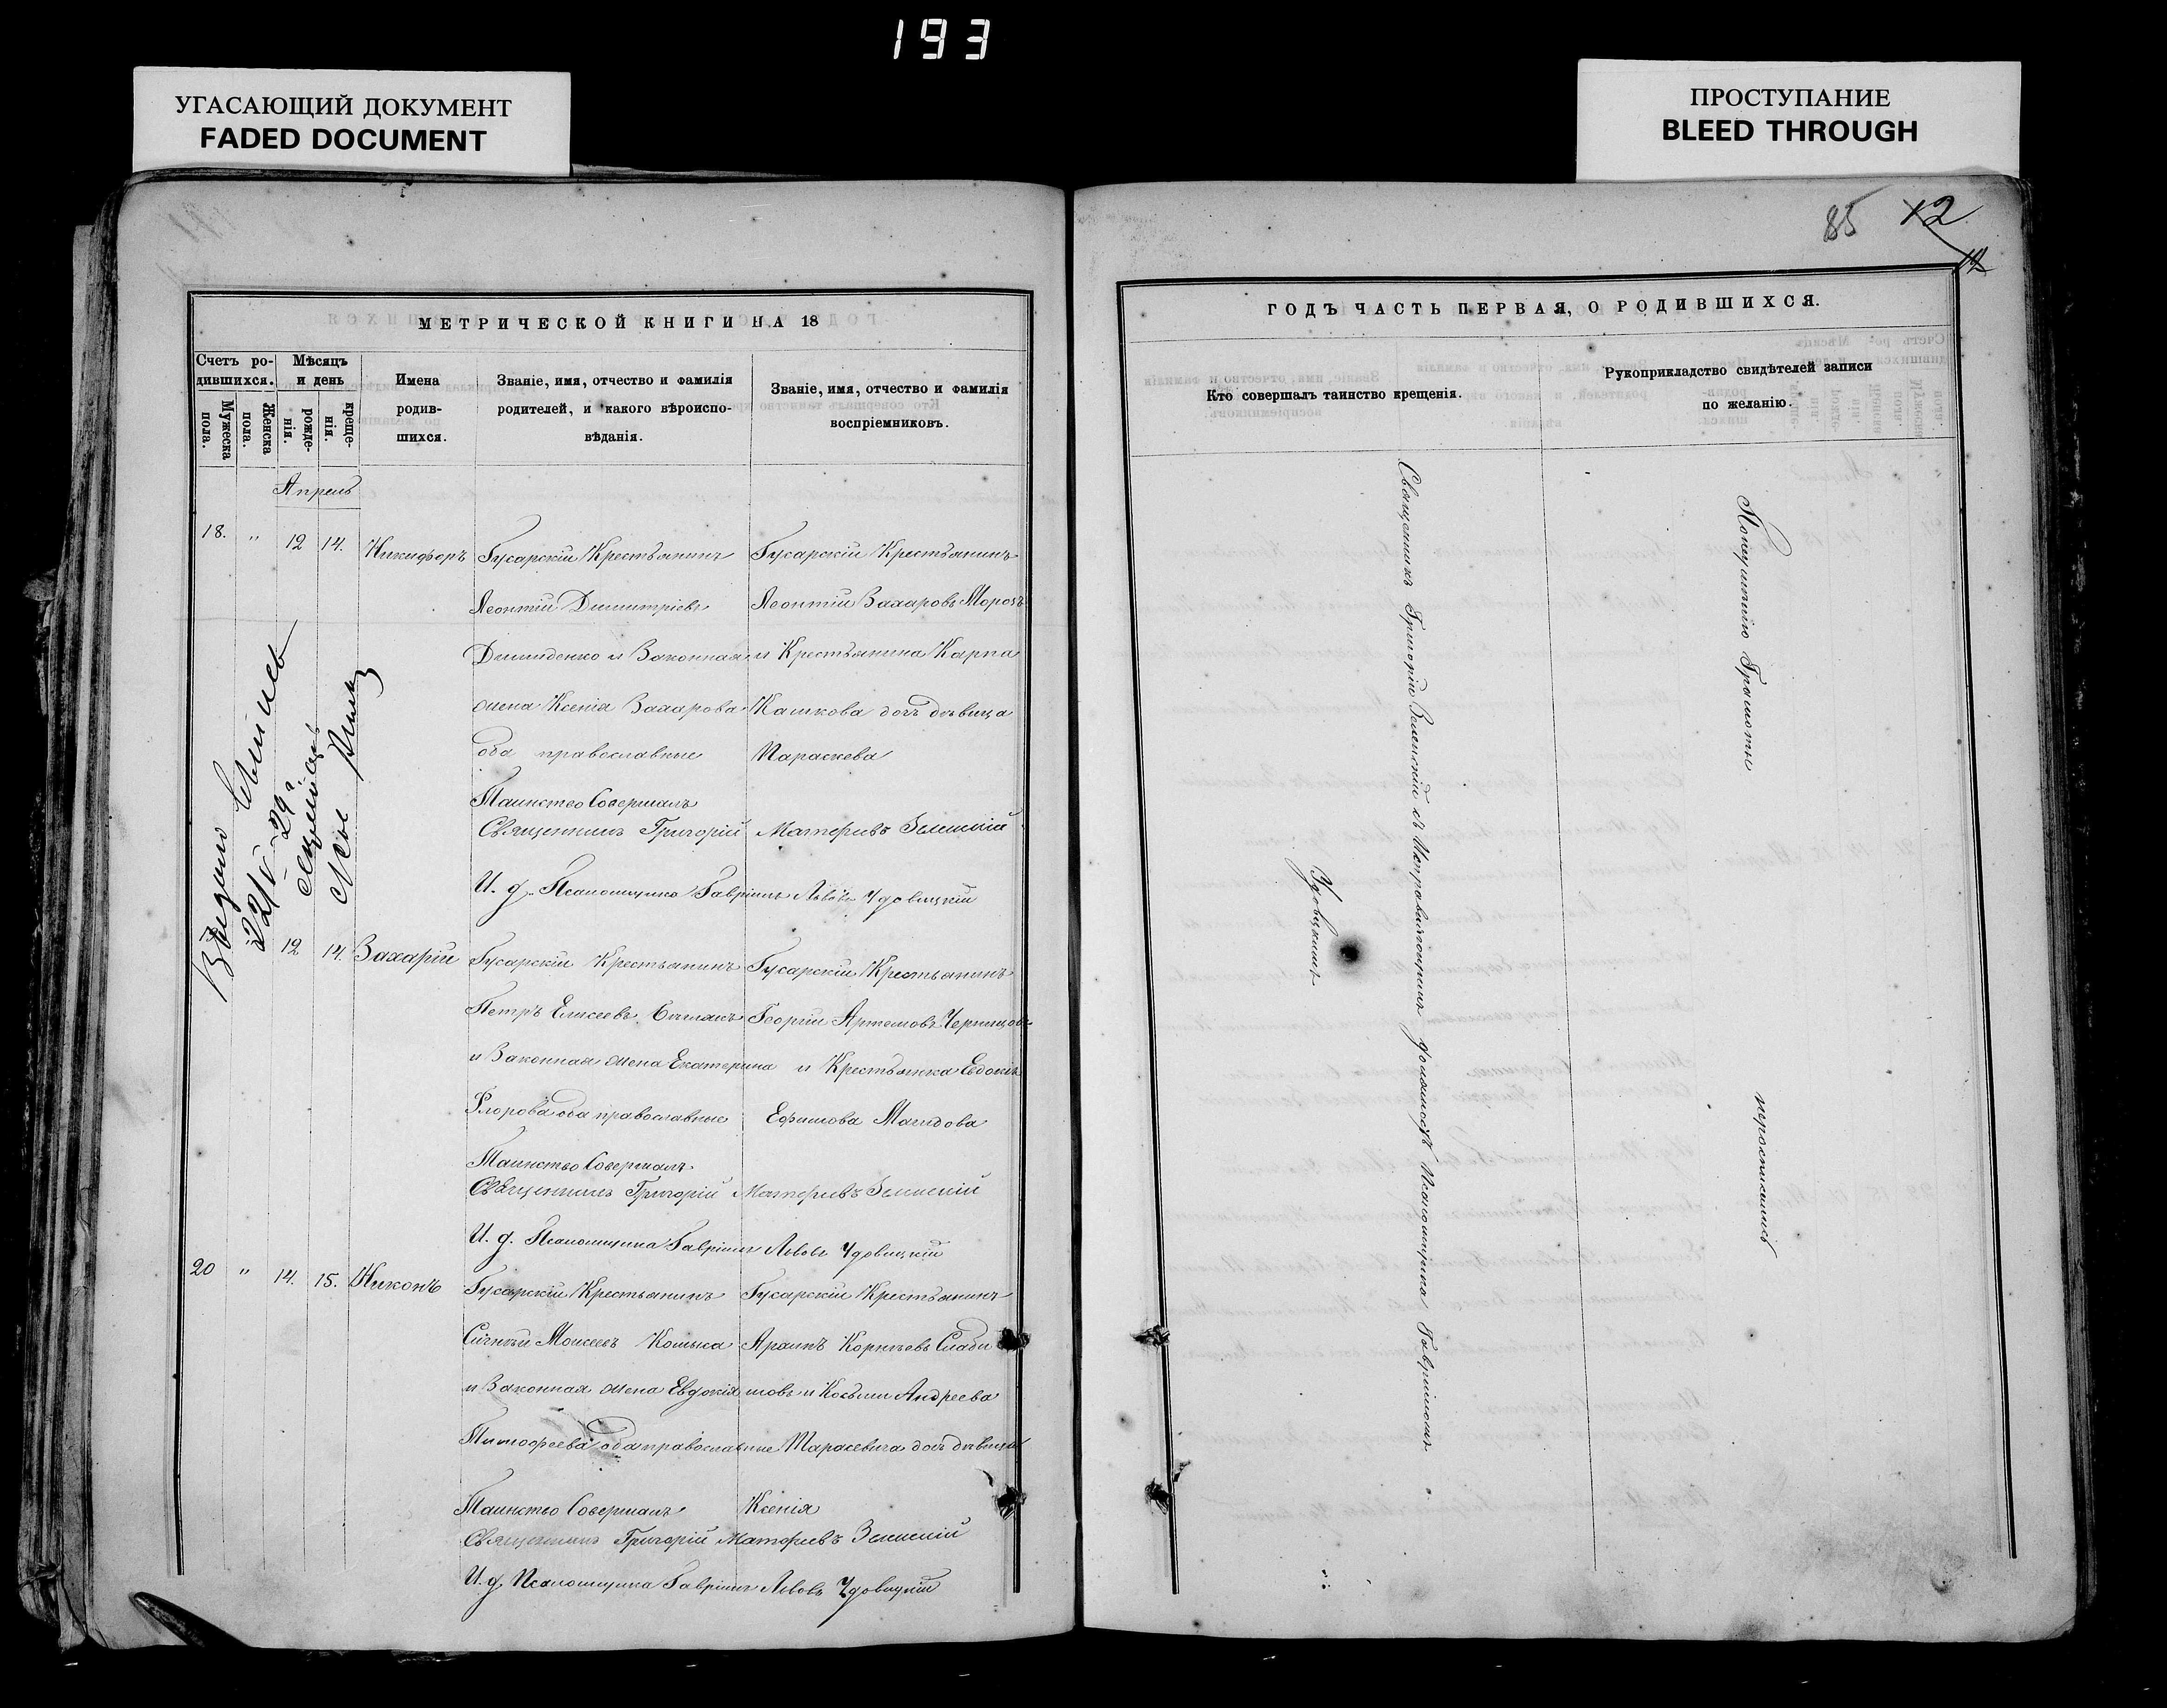 193
УГАСАЮЩИЙ ДОКУМЕНТ
FADED DOCUMENT
ПРОСТУПАНИЕ
BLEED THROUGH
85 12
12
МЕТРИЧЕСКОЙ КНИГИ НА 18
Счетъ ро-
дившихся.
Мужеска
пола.
Женска
пола.
Мѣсяцъ
и день
рожде-
нія.
креще-
нія.
Имена
родив-
шихся.
Званіе, имя, отчество и фамилія
родителей, и какого вѣроиспо-
вѣданія.
Званіе, имя, отчество и фамилія
воспріемниковъ.
Апрель
18. " 12 14. Никифоръ Гусарскій Крестьянинъ Гусарскій Крестьянинъ
Леонтій Димитріевъ Леонтій Захаровъ Морозъ
Демиденко и Законная и Крестьянина Карпа
жена Ксенія Захарова Камкова дочь дѣвица
оба православные Параскева
Таинство Совершалъ
Священникъ Григорій Матфіевъ Зелинскій
И. д. Псаломщика Гавріилъ Львовъ Удовицкій
Видано
22/V-29 г.
12 14. Захарій Гусарскій Крестьянинъ Гусарскій Крестьянинъ
Петръ Елисеевъ Георгій Артемовъ
и Законная жена Екатерина и Крестьянка Евдокія
Флорова оба православные Ефимова
Таинство Совершалъ
Священникъ Григорій Матфіевъ Зелинскій
И. д. Псаломщика Гавріилъ Львовъ Удовицкій
20 " 14. 15. Никонъ Гусарскій Крестьянинъ Гусарскій Крестьянинъ
Моисеевъ Кошька Корнѣевъ Слаби
и Законная жена Евдокія мовъ и Косьмы Андреева
Тимофеева оба православные Тарасевича дочь дѣвица
Таинство Совершалъ Ксенія
Священникъ Григорій Матфіевъ Зелинскій
И. д. Псаломщика Гавріилъ Львовъ Удовицкій
ГОДЪ ЧАСТЬ ПЕРВАЯ, О РОДИВШИХСЯ.
Кто совершалъ таинство крещенія.
Рукоприкладство свидѣтелей записи
по желанію.
Священникъ Григорій Зелинскій съ Исправляющимъ должность Псаломщика Гавріиломъ
Удовицкимъ
По неумѣнію Грамоты